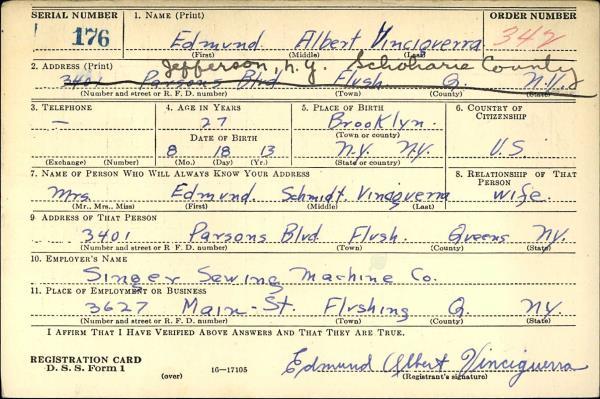 SERIAL NUMBER 1. NAME (Print) ORDER NUMBER
176 Edmund Albert Vinciguerra 342
(First) (Middle) (Last)
2. ADDRESS (Print) Jefferson, N.Y. Schoharie County
3401 Parsons Blvd Flush Q. N.Y.
(Number and street or R. F. D. number) (Town) (County) (State)
3. TELEPHONE 4. AGE IN YEARS 5. PLACE OF BIRTH 6. COUNTRY OF CITIZENSHIP
— 27 Brooklyn.
(Town or county)
DATE OF BIRTH
8 18 13 N.Y. N.Y. U.S.
(Exchange) (Number) (Mo.) (Day) (Yr.) (State or country)
7. NAME OF PERSON WHO WILL ALWAYS KNOW YOUR ADDRESS 8. RELATIONSHIP OF THAT PERSON
Mrs. Edmund. Schmidt. Vinciguerra wife.
(Mr., Mrs., Miss) (First) (Middle) (Last)
9 ADDRESS OF THAT PERSON
3401 Parsons Blvd Flush. Queens NY.
(Number and street or R. F. D. number) (Town) (County) (State)
10. EMPLOYER'S NAME
Singer Sewing Machine Co.
11. PLACE OF EMPLOYMENT OR BUSINESS
3627 Main-St. Flushing Q. NY.
(Number and street or R. F. D. number) (Town) (County) (State)
I AFFIRM THAT I HAVE VERIFIED ABOVE ANSWERS AND THAT THEY ARE TRUE.
REGISTRATION CARD
D. S. S. Form 1 (over) 16—17105 Edmund Albert Vinciguerra
(Registrant's signature)